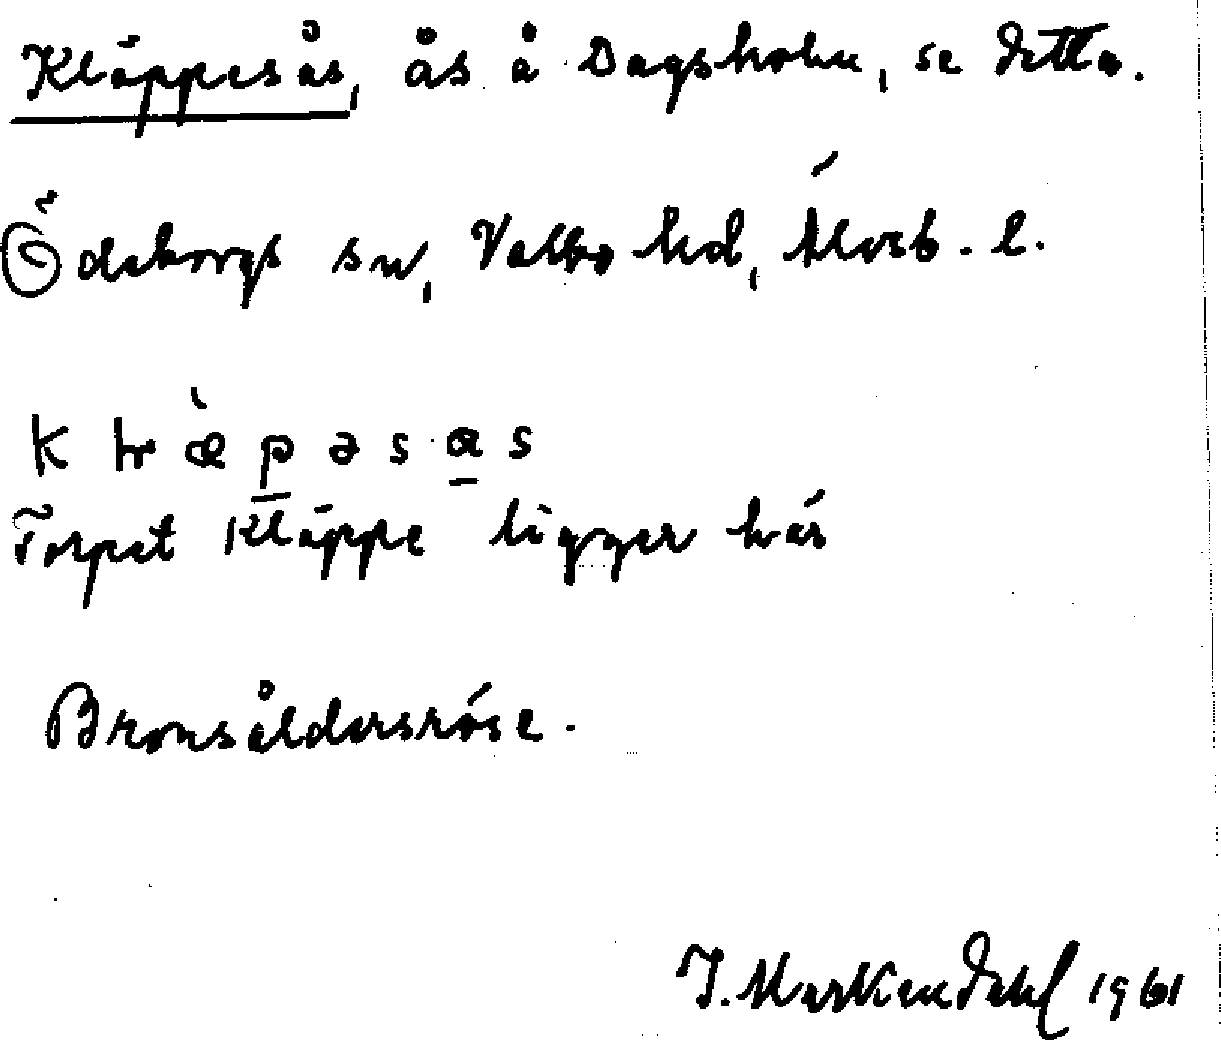 Kläppesås, ås å Dagsholm, se detta.
Ödeborgs sn, Valbo hd, Älvsb. l.
Torpet Kläppe ligger här
Bronsåldersröse.
J. Markendahl 1961